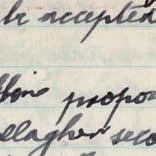 be accepted
propo
llagher seco